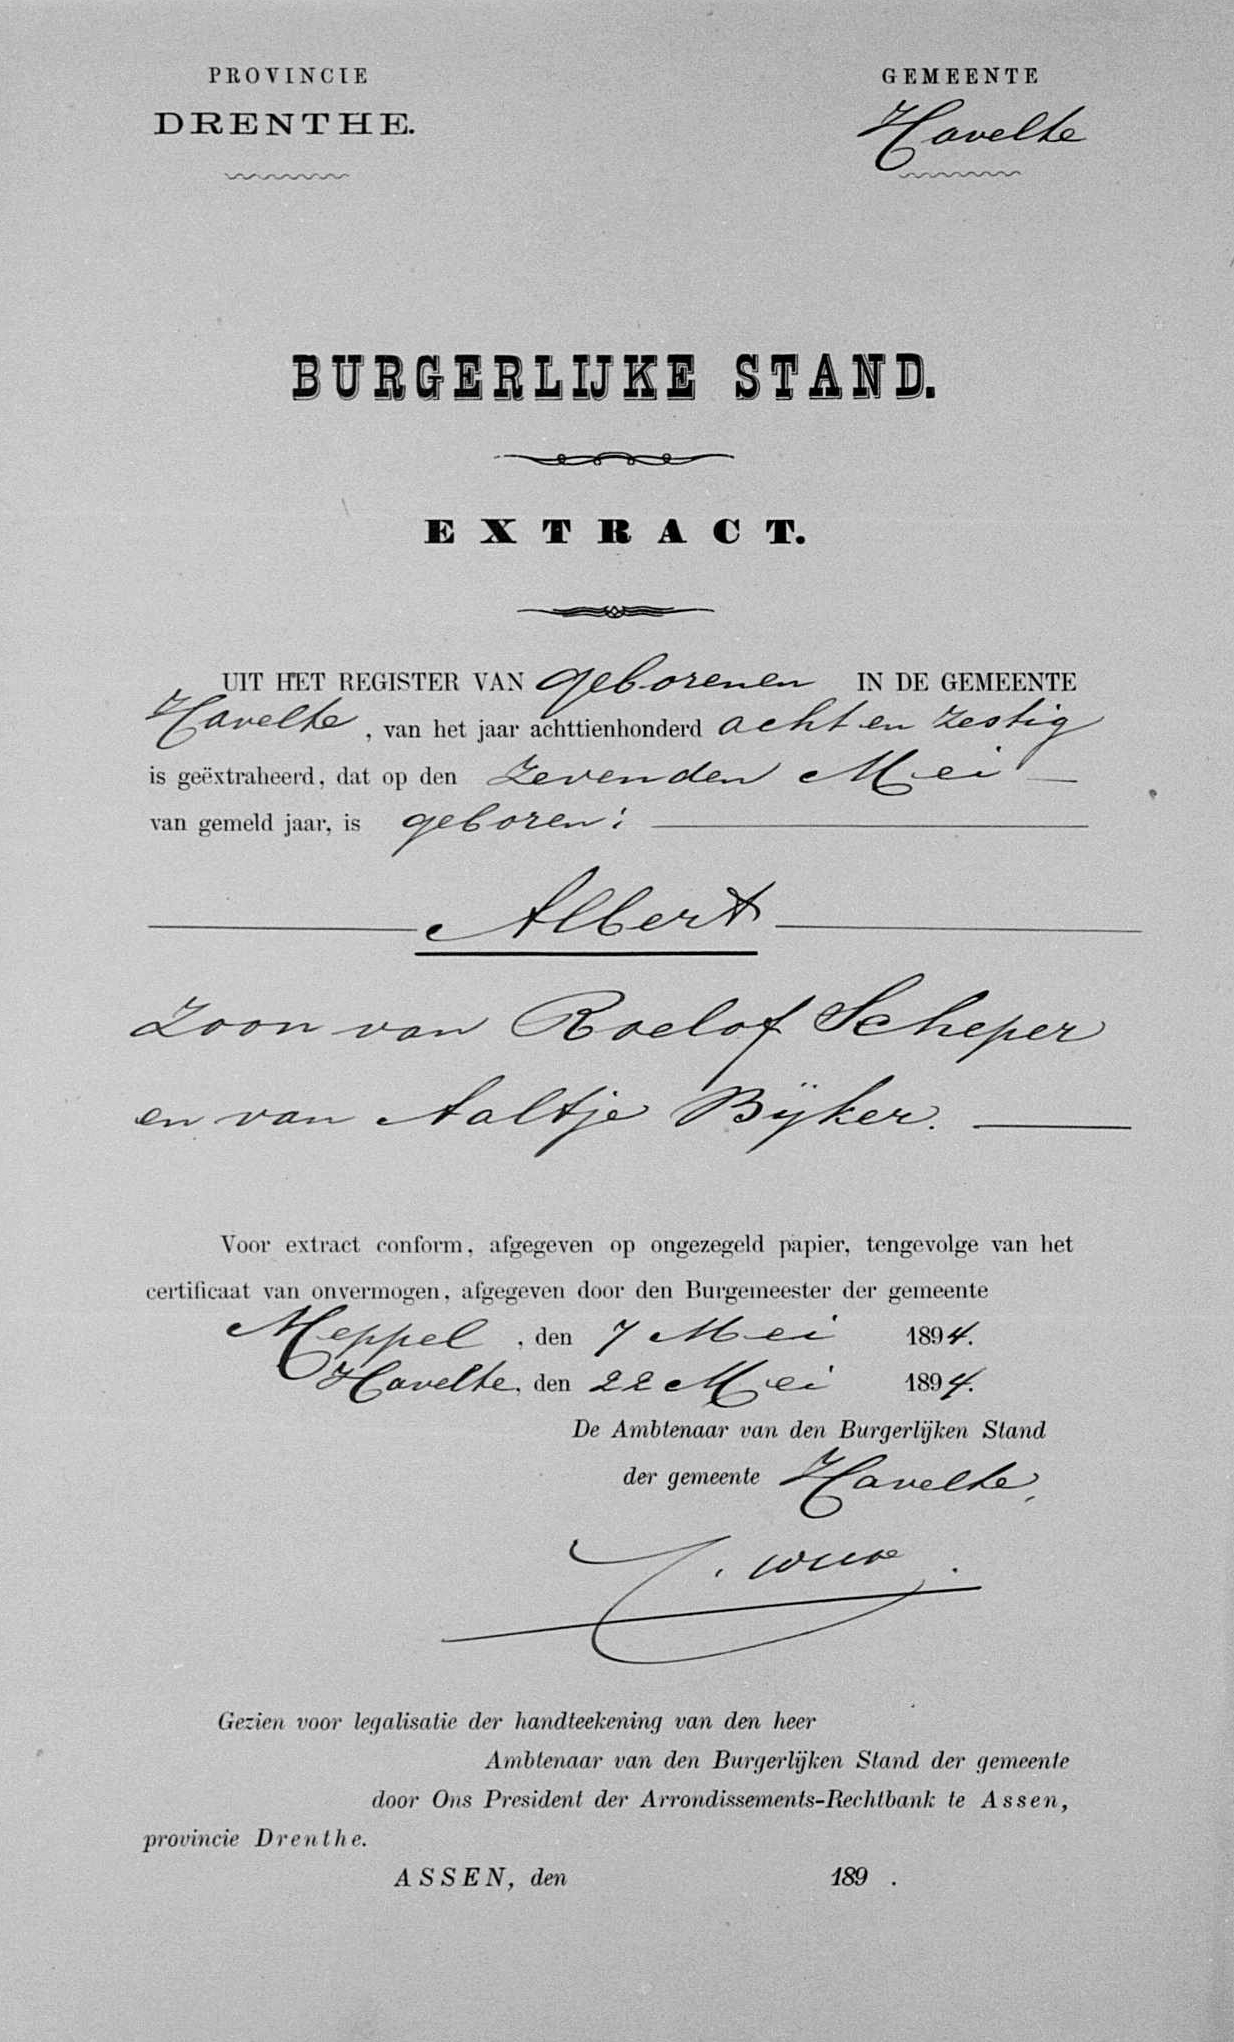 PROVINCIE
DRENTHE.
GEMEENTE
Havelte
BURGERLIJKE STAND.
EXTRACT.
UIT HET REGISTER VAN geborenen IN DE GEMEENTE
Havelte, van het jaar achttienhonderd acht en zestig
is geëxtraheerd, dat op den zevenden Mei
van gemeld jaar, is geboren:
Albert
Zoon van Roelof Scheper
en van Aaltje Bijker.
Voor extract conform, afgegeven op ongezegeld papier, tengevolge van het
certificaat van onvermogen, afgegeven door den Burgemeester der gemeente
Meppel, den 7 Mei 1894.
Havelte, den 22 Mei 1894.
De Ambtenaar van den Burgerlijken Stand
der gemeente Havelte,
Gezien voor legalisatie der handteekening van den heer
Ambtenaar van den Burgerlijken Stand der gemeente
door Ons President der Arrondissements-Rechtbank te Assen,
provincie Drenthe.
ASSEN, den 189 .